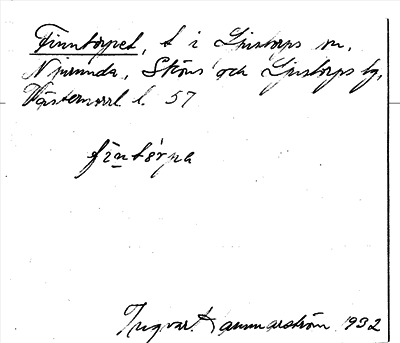 Finntorpet, t i Ljustorps sn,
Njurunda, Sköns och Ljustorps tg,
Västernorrl l. 57
fìntòrpa
Ingvar Hammarström 1932